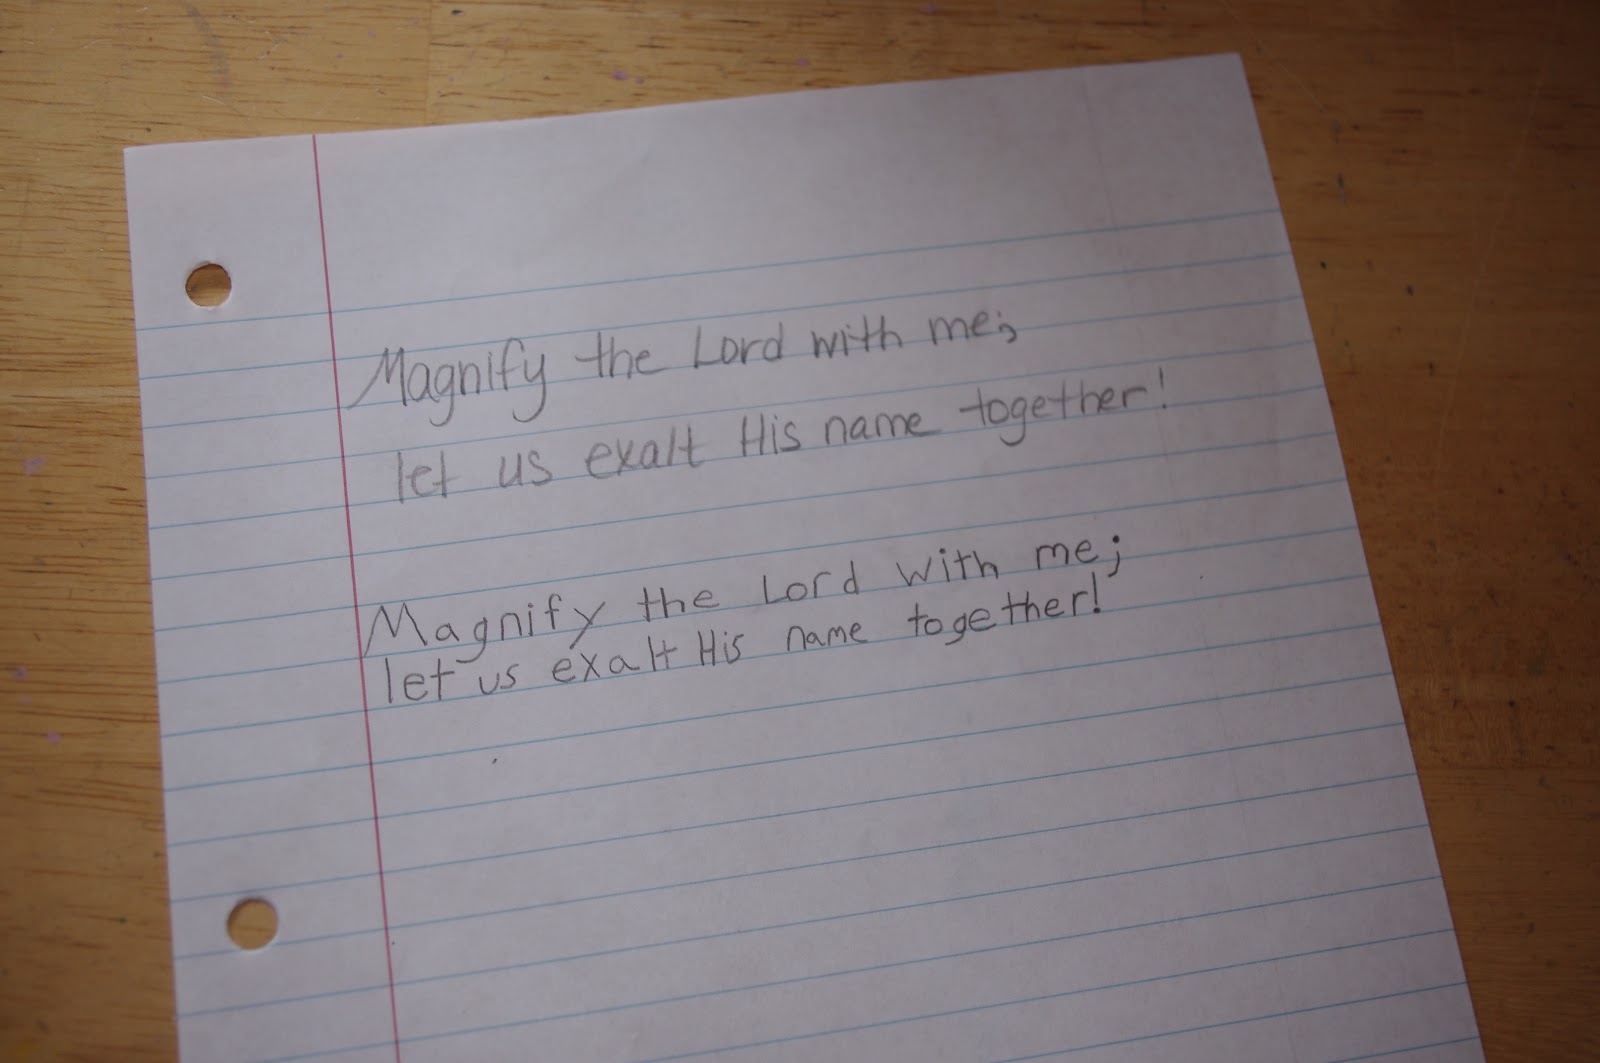 Magnify the Lord with me;
let us exalt His name together!
Magnify the Lord with me;
let us exalt His name together!